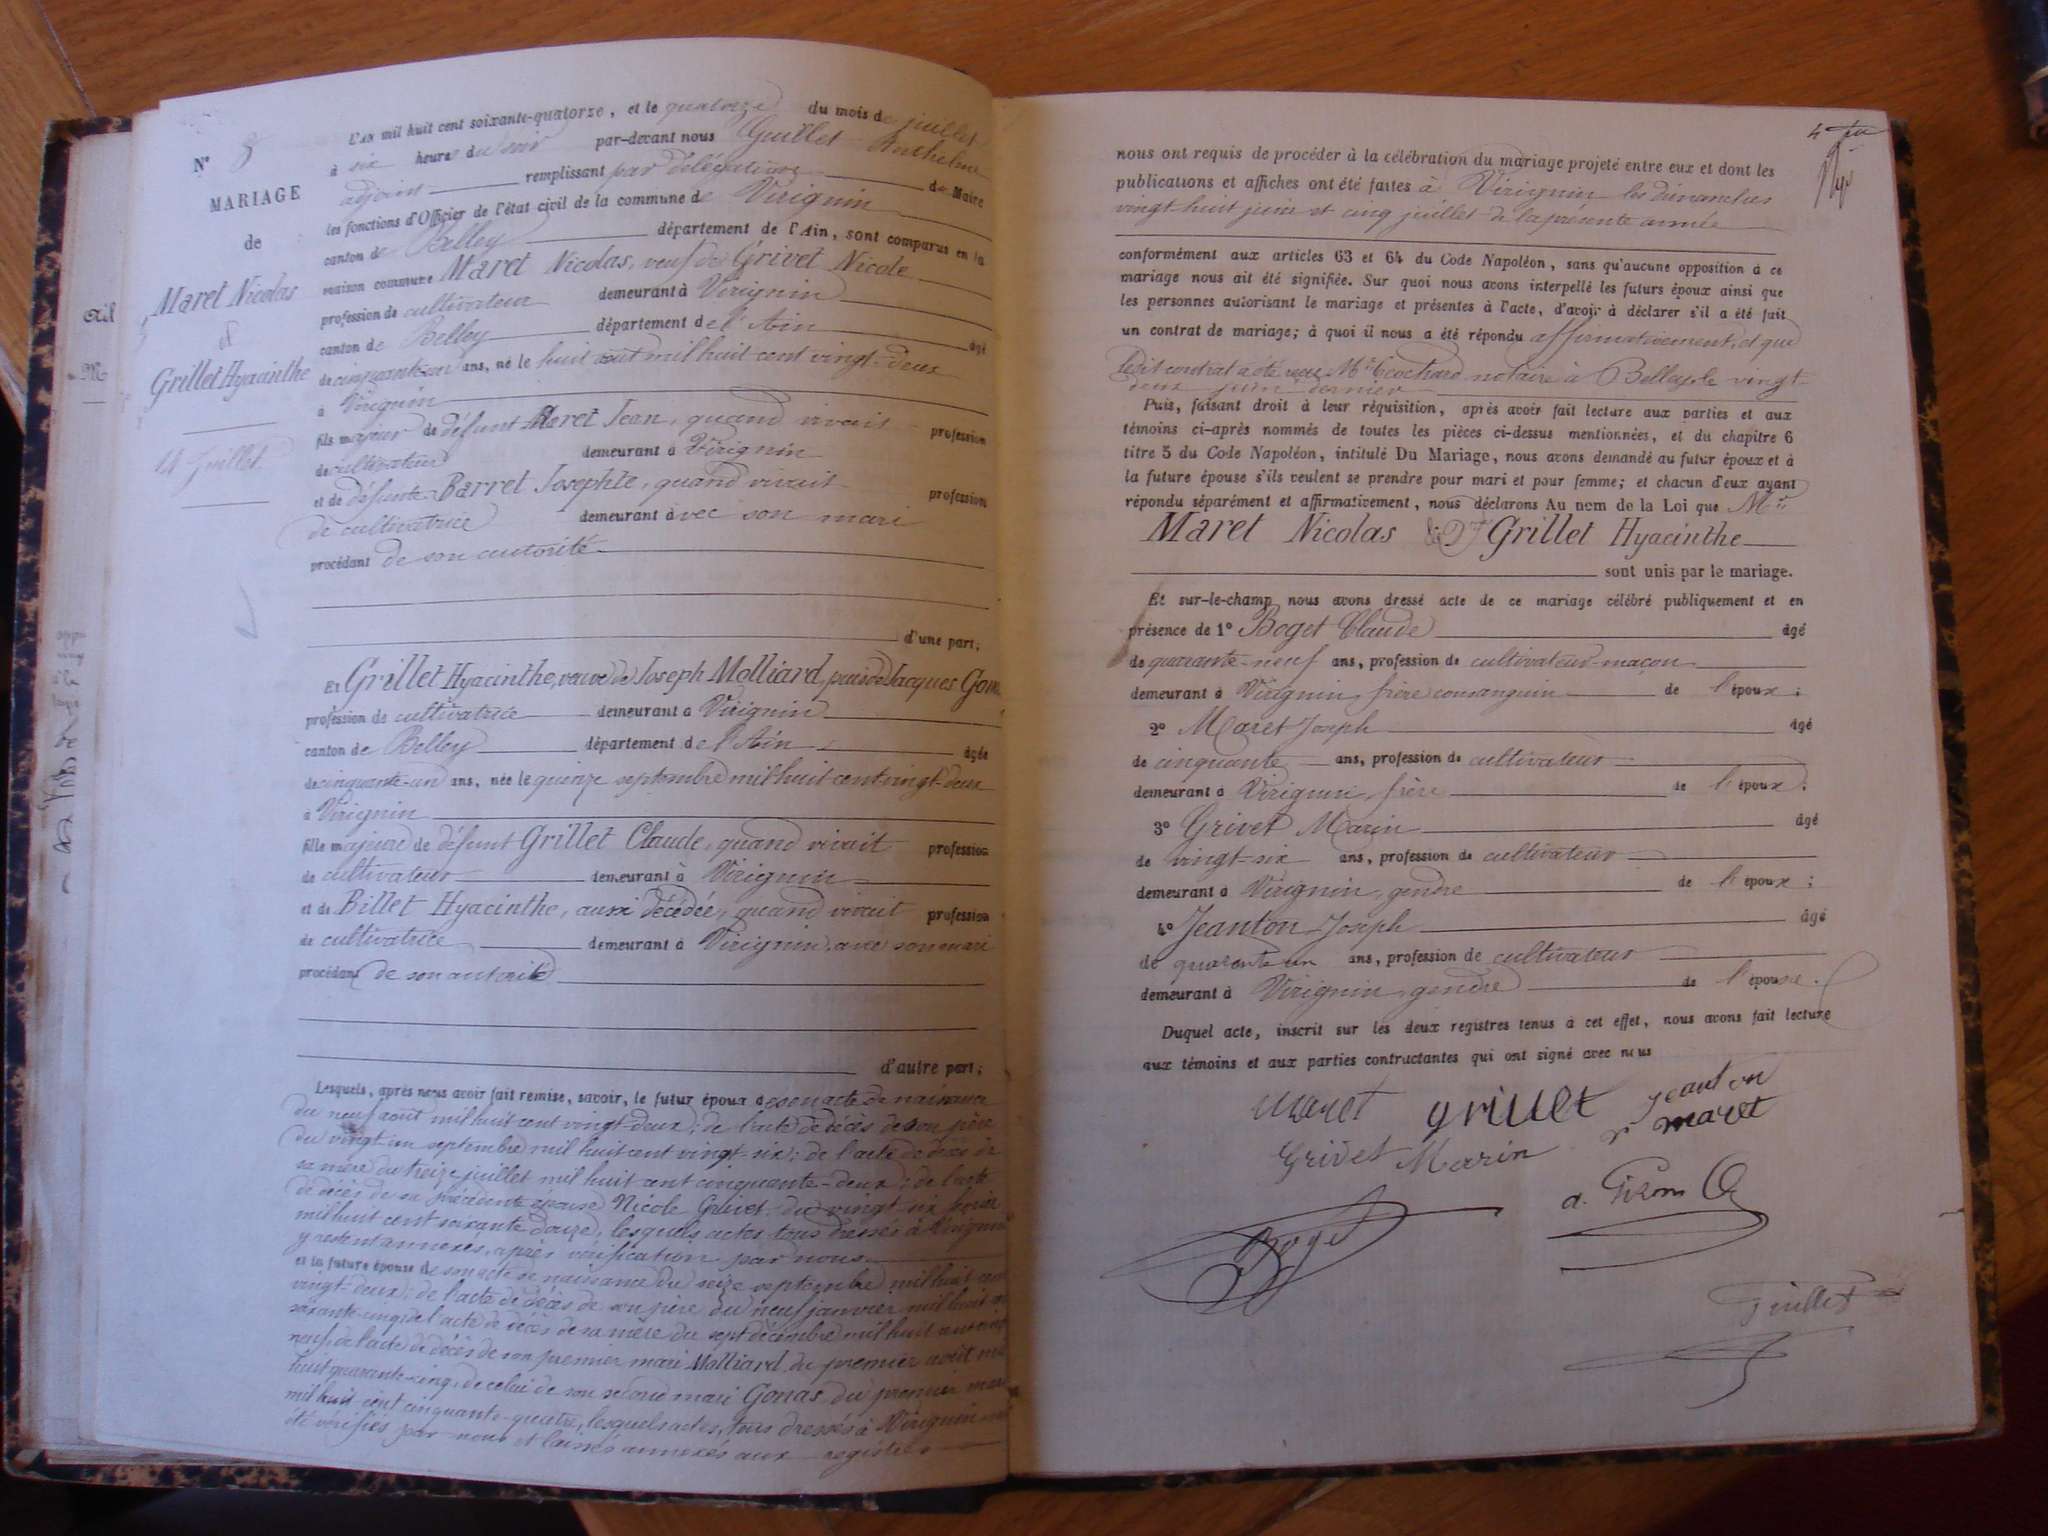 N° 8
MARIAGE
de
Maret Nicolas
&
Grillet Hyacinthe
14 Juillet
L'AN mil huit cent soixante-quatorze, et le quatorze du mois de juillet
à six heures du soir par-devant nous Guillet Anthelme
adjoint remplissant par délégation de Maire
les fonctions d'Officier de l'état civil de la commune de Virignin
canton de Belley département de l'Ain, sont comparus en la
maison commune Maret Nicolas, veuf de Grivet Nicole
profession de cultivateur demeurant à Virignin
canton de Belley département de l'Ain âgé
de cinquante-un ans, né le huit août mil huit cent vingt-deux
à Virignin
fils majeur de défunt Maret Jean, quand vivait profession
de cultivateur demeurant à Virignin
et de défunte Barret Josephte, quand vivait profession
de cultivatrice demeurant avec son mari
procédant de son autorité
d'une part;
Et Grillet Hyacinthe, veuve de Joseph Molliard, puis de Jacques Gonas
profession de cultivatrice demeurant à Virignin
canton de Belley département de l'Ain âgée
de cinquante-un ans, née le quinze septembre mil huit cent vingt-deux
à Virignin
fille majeure de défunt Grillet Claude, quand vivait profession
de cultivateur demeurant à Virignin
et de Billet Hyacinthe, aussi décédée, quand vivait profession
de cultivatrice demeurant à Virignin avec son mari
procédant de son autorité
d'autre part;
Lesquels, après nous avoir fait remise, savoir, le futur époux de son acte de naissance
du neuf août mil huit cent vingt-deux; de l'acte de décès de son père
du vingt un septembre mil huit cent vingt-six; de l'acte de décès de
sa mère du treize juillet mil huit cent cinquante-deux; de l'acte
de décès de sa précédente épouse Nicole Grivet, du vingt six
mil huit cent soixante douze, lesquels actes tous dressés à Virignin
y restent annexés, après vérification par nous
et la future épouse de son acte de naissance du seize septembre mil huit cent
vingt-deux; de l'acte de décès de son père du neuf janvier mil huit cent
soixante-cinq; de l'acte de décès de sa mère du sept décembre mil huit cent
neuf, de l'acte de décès de son premier mari Molliard du premier août mil
huit quarante-cinq, de celui de son second mari Gonas du premier mars
mil huit cent cinquante-quatre, lesquels actes, tous dressés à Virignin ont
été vérifiés par nous et laissés annexés aux registres
nous ont requis de procéder à la célébration du mariage projeté entre eux et dont les
publications et affiches ont été faites à Virignin les dimanches
vingt-huit juin et cinq juillet de la présente année
conformément aux articles 63 et 64 du Code Napoléon, sans qu'aucune opposition à ce
mariage nous ait été signifiée. Sur quoi nous avons interpellé les futurs époux ainsi que
les personnes autorisant le mariage et présentes à l'acte, d'avoir à déclarer s'il a été fait
un contrat de mariage; à quoi il nous a été répondu affirmativement, et que
ledit contrat a été reçu Me Cochard notaire à Belley le vingt-
deux juin dernier
Puis, faisant droit à leur réquisition, après avoir fait lecture aux parties et aux
témoins ci-après nommés de toutes les pièces ci-dessus mentionnées, et du chapitre 6
titre 5 du Code Napoléon, intitulé Du Mariage, nous avons demandé au futur époux et à
la future épouse s'ils veulent se prendre pour mari et pour femme; et chacun d'eux ayant
répondu séparément et affirmativement, nous déclarons Au nom de la Loi que Mr
Maret Nicolas & Grillet Hyacinthe
sont unis par le mariage.
Et sur-le-champ nous avons dressé acte de ce mariage célébré publiquement et en
présence de 1° Boget Claude âgé
de quarante-neuf ans, profession de cultivateur-maçon
demeurant à Virignin, frère consanguin de l'époux;
2° Maret Joseph âgé
de cinquante ans, profession de cultivateur
demeurant à Virignin, frère de l'époux;
3° Grivet Marin âgé
de vingt-six ans, profession de cultivateur
demeurant à Virignin, gendre de l'époux;
4° Jeanton Joseph âgé
de quarante un ans, profession de cultivateur
demeurant à Virignin, gendre de l'épouse.
Duquel acte, inscrit sur les deux registres tenus à cet effet, nous avons fait lecture
aux témoins et aux parties contractantes qui ont signé avec nous
Maret grillet jeanton
maret
Grivet Marin
Boget
Guillet